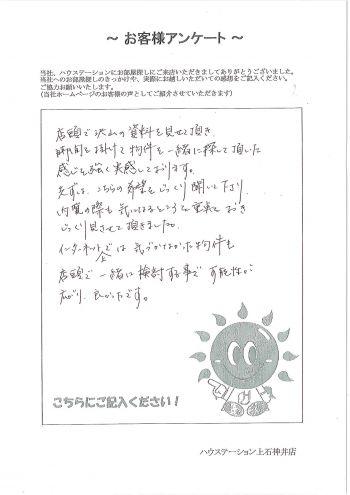 ～ お客様アンケート ～
当社、ハウステーションにお部屋探しにご来店いただきましてありがとうございました。
当社へのお部屋探しのきっかけや、実際にお越しいただいての感想をご記入ください。
ご協力お願いいたします。
(当社ホームページのお客様の声としてご紹介させていただきます)
店頭で沢山の資料を見せて頂き
時間を掛けて物件を一緒に探して頂いた
感じを強く実感しております。
先ずは、こちらの希望をじっくり聞いて下り
内覧の際も気になるところを重点におき
じっくり見させて頂きました。
インターネット上では気づかなかった物件も
店頭で一緒に検討する事で可能性が
広がり、良かったです。
こちらにご記入ください！
ハウステーション上石神井店